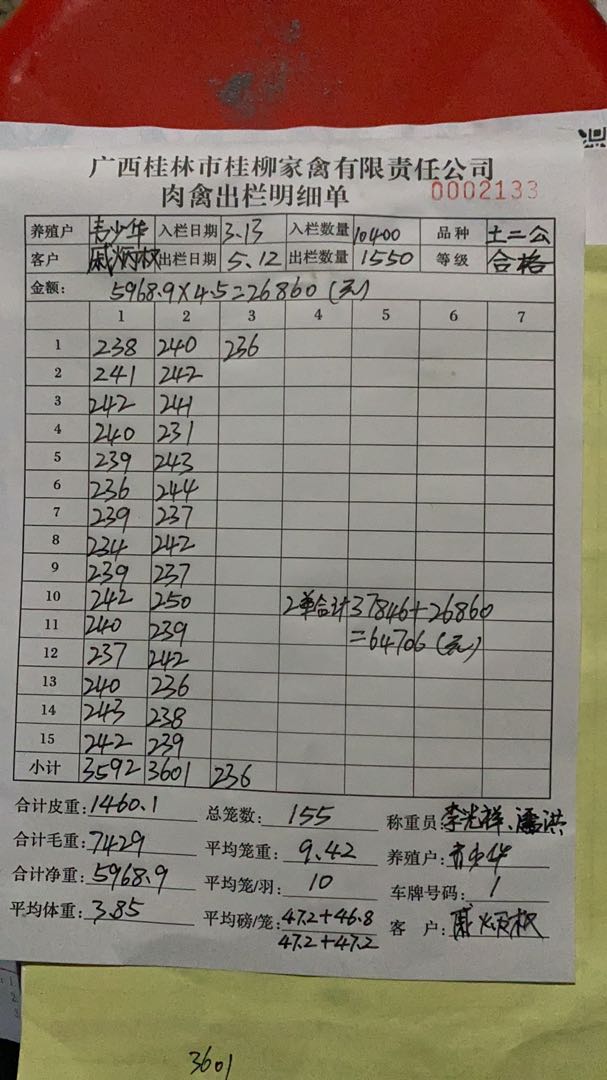 广西桂林市桂柳家禽有限责任公司
肉禽出栏明细单 0002133
养殖户 韦少华 入栏日期 3.13 入栏数量 10400 品种 土二公
客户 戚炳权 出栏日期 5.12 出栏数量 1550 等级 合格
金额: 5968.9×4.5=26860(元)
1 2 3 4 5 6 7
1 238 240 236
2 241 242
3 242 241
4 240 231
5 239 243
6 236 244
7 239 237
8 234 242
9 239 237
10 242 250 2单合计37846+26860
11 240 239 =64706(元)
12 237 242
13 240 236
14 243 238
15 242 239
小计 3592 3601 236
合计皮重: 1460.1 总笼数: 155 称重员: 李光祥、潘洪
合计毛重: 7429 平均笼重: 9.42 养殖户: 韦少华
合计净重: 5968.9 平均笼/羽: 10 车牌号码: 1
平均体重: 3.85 平均磅/笼: 47.2+46.8 客 户: 戚炳权
47.2+47.2
3601